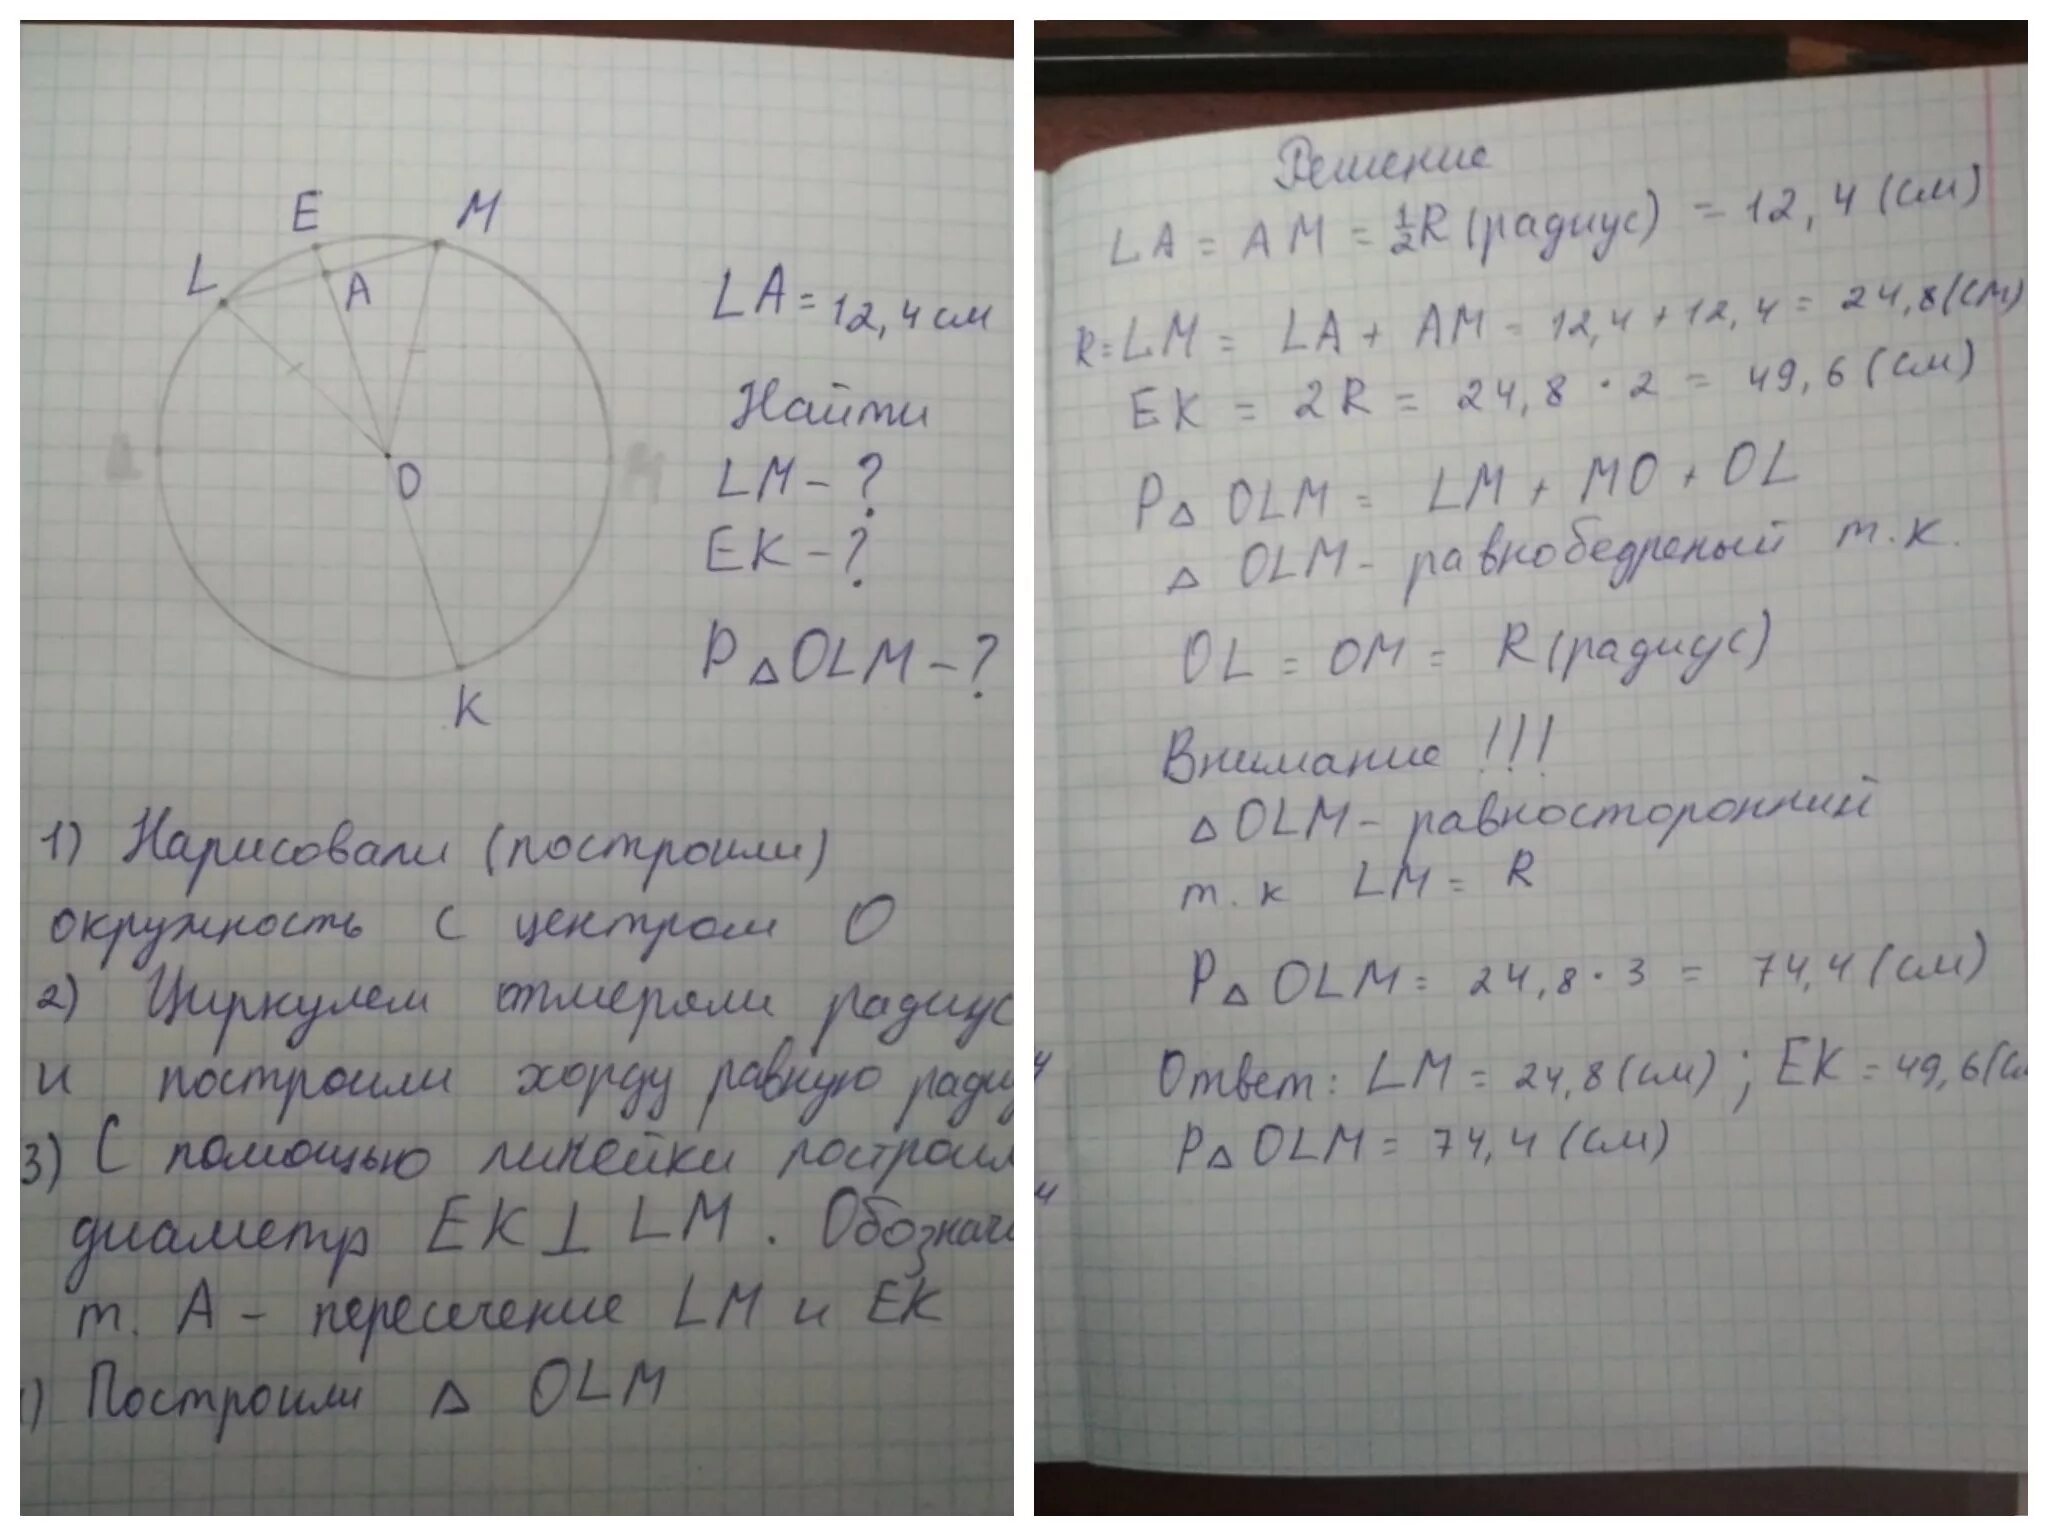 E
M
L
A
O
K
LA = 12,4 см
Найти
LM - ?
EK - ?
P△OLM - ?
1) Нарисовали (построили)
окружность с центром O
2) Циркулем отмеряли радиус
и построили хорду равную радиу
3) С помощью линейки построил
диаметр EK ⊥ LM. Обозначи
т. A - пересечение LM и EK
) Построили △ OLM
Решение
LA = AM = ½R (радиус) = 12,4 (см)
R = LM = LA + AM = 12,4 + 12,4 = 24,8 (см)
EK = 2R = 24,8 · 2 = 49,6 (см)
P△ OLM = LM + MO + OL
△ OLM - равнобедреный т.к.
OL = OM = R (радиус)
Внимание !!!
△OLM - равносторонний
т.к LM = R
P△ OLM = 24,8 · 3 = 74,4 (см)
Ответ: LM = 24,8 (см); EK = 49,6 (см
P△ OLM = 74,4 (см)